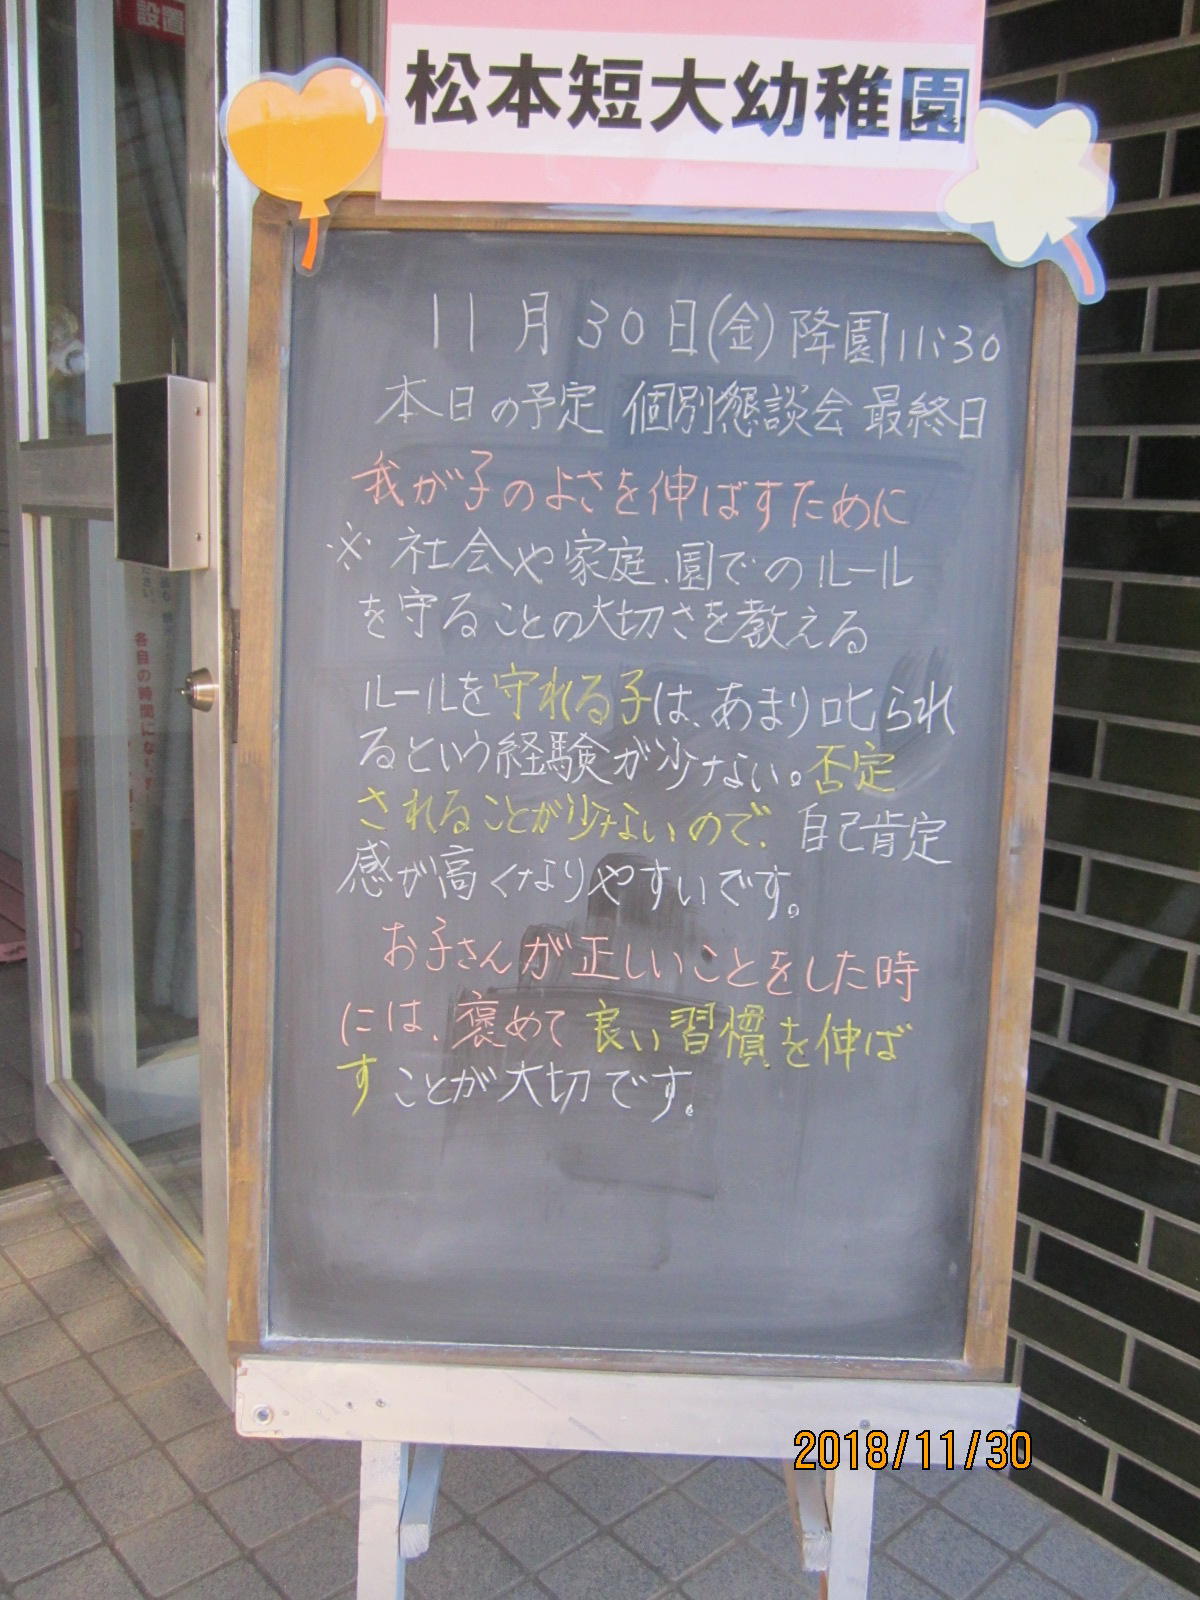 設置
松本短大幼稚園
11月30日(金)降園11:30
本日の予定 個別懇談会 最終日
我が子のよさを伸ばすために
※社会や家庭、園でのルール
を守ることの大切さを教える
ルールを守れる子は、あまり叱られ
るという経験が少ない。否定
されることが少ないので、自己肯定
感が高くなりやすいです。
お子さんが正しいことをした時
には、褒めて良い習慣を伸ば
すことが大切です。
各自の時間になり
2018/11/30